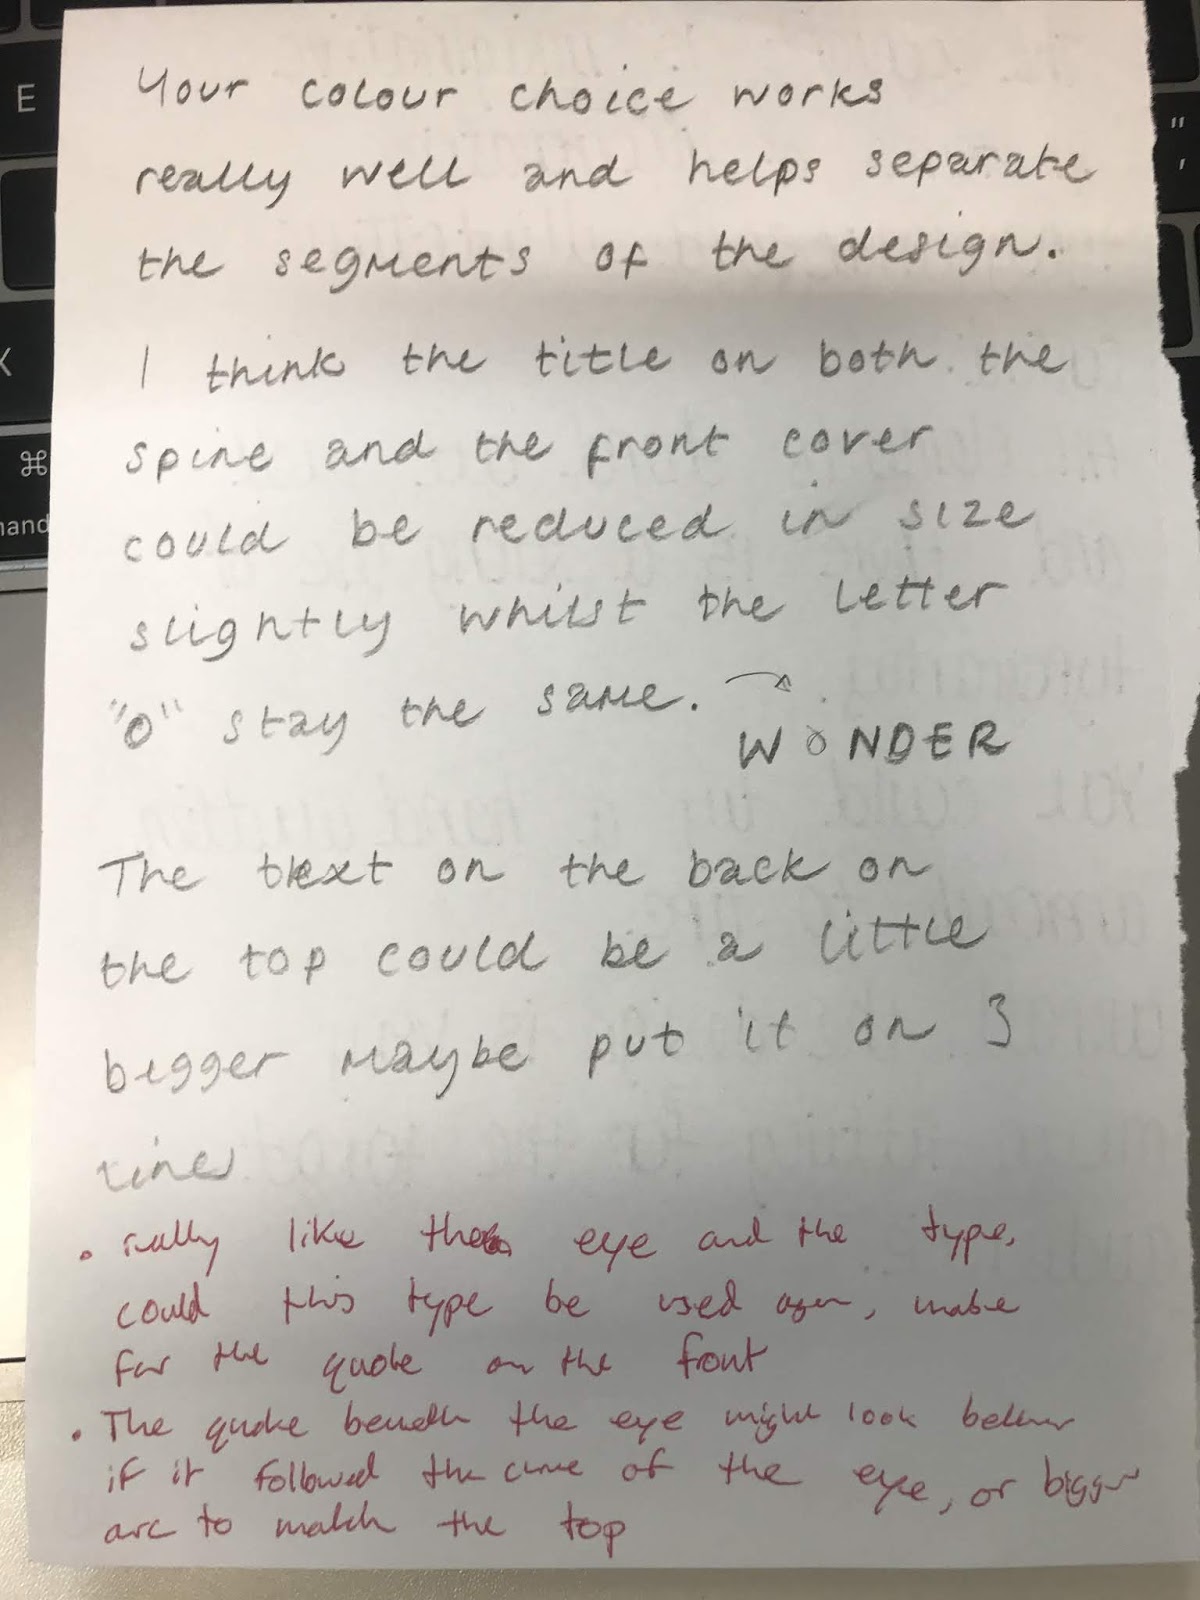 Your colour choice works
really well and helps separate
the segments of the design.
I think the title on both the
spine and the front cover
could be reduced in size
slightly whilst the letter
"O" stay the same.
WONDER
The text on the back on
the top could be a little
bigger maybe put it on 3
lines
• really like the eye and the type,
could this type be used again, maybe
for the quote on the front
• The quote beneath the eye might look better
if it followed the curve of the eye, or bigger
arc to match the top
E
X
⌘
mand
"
'